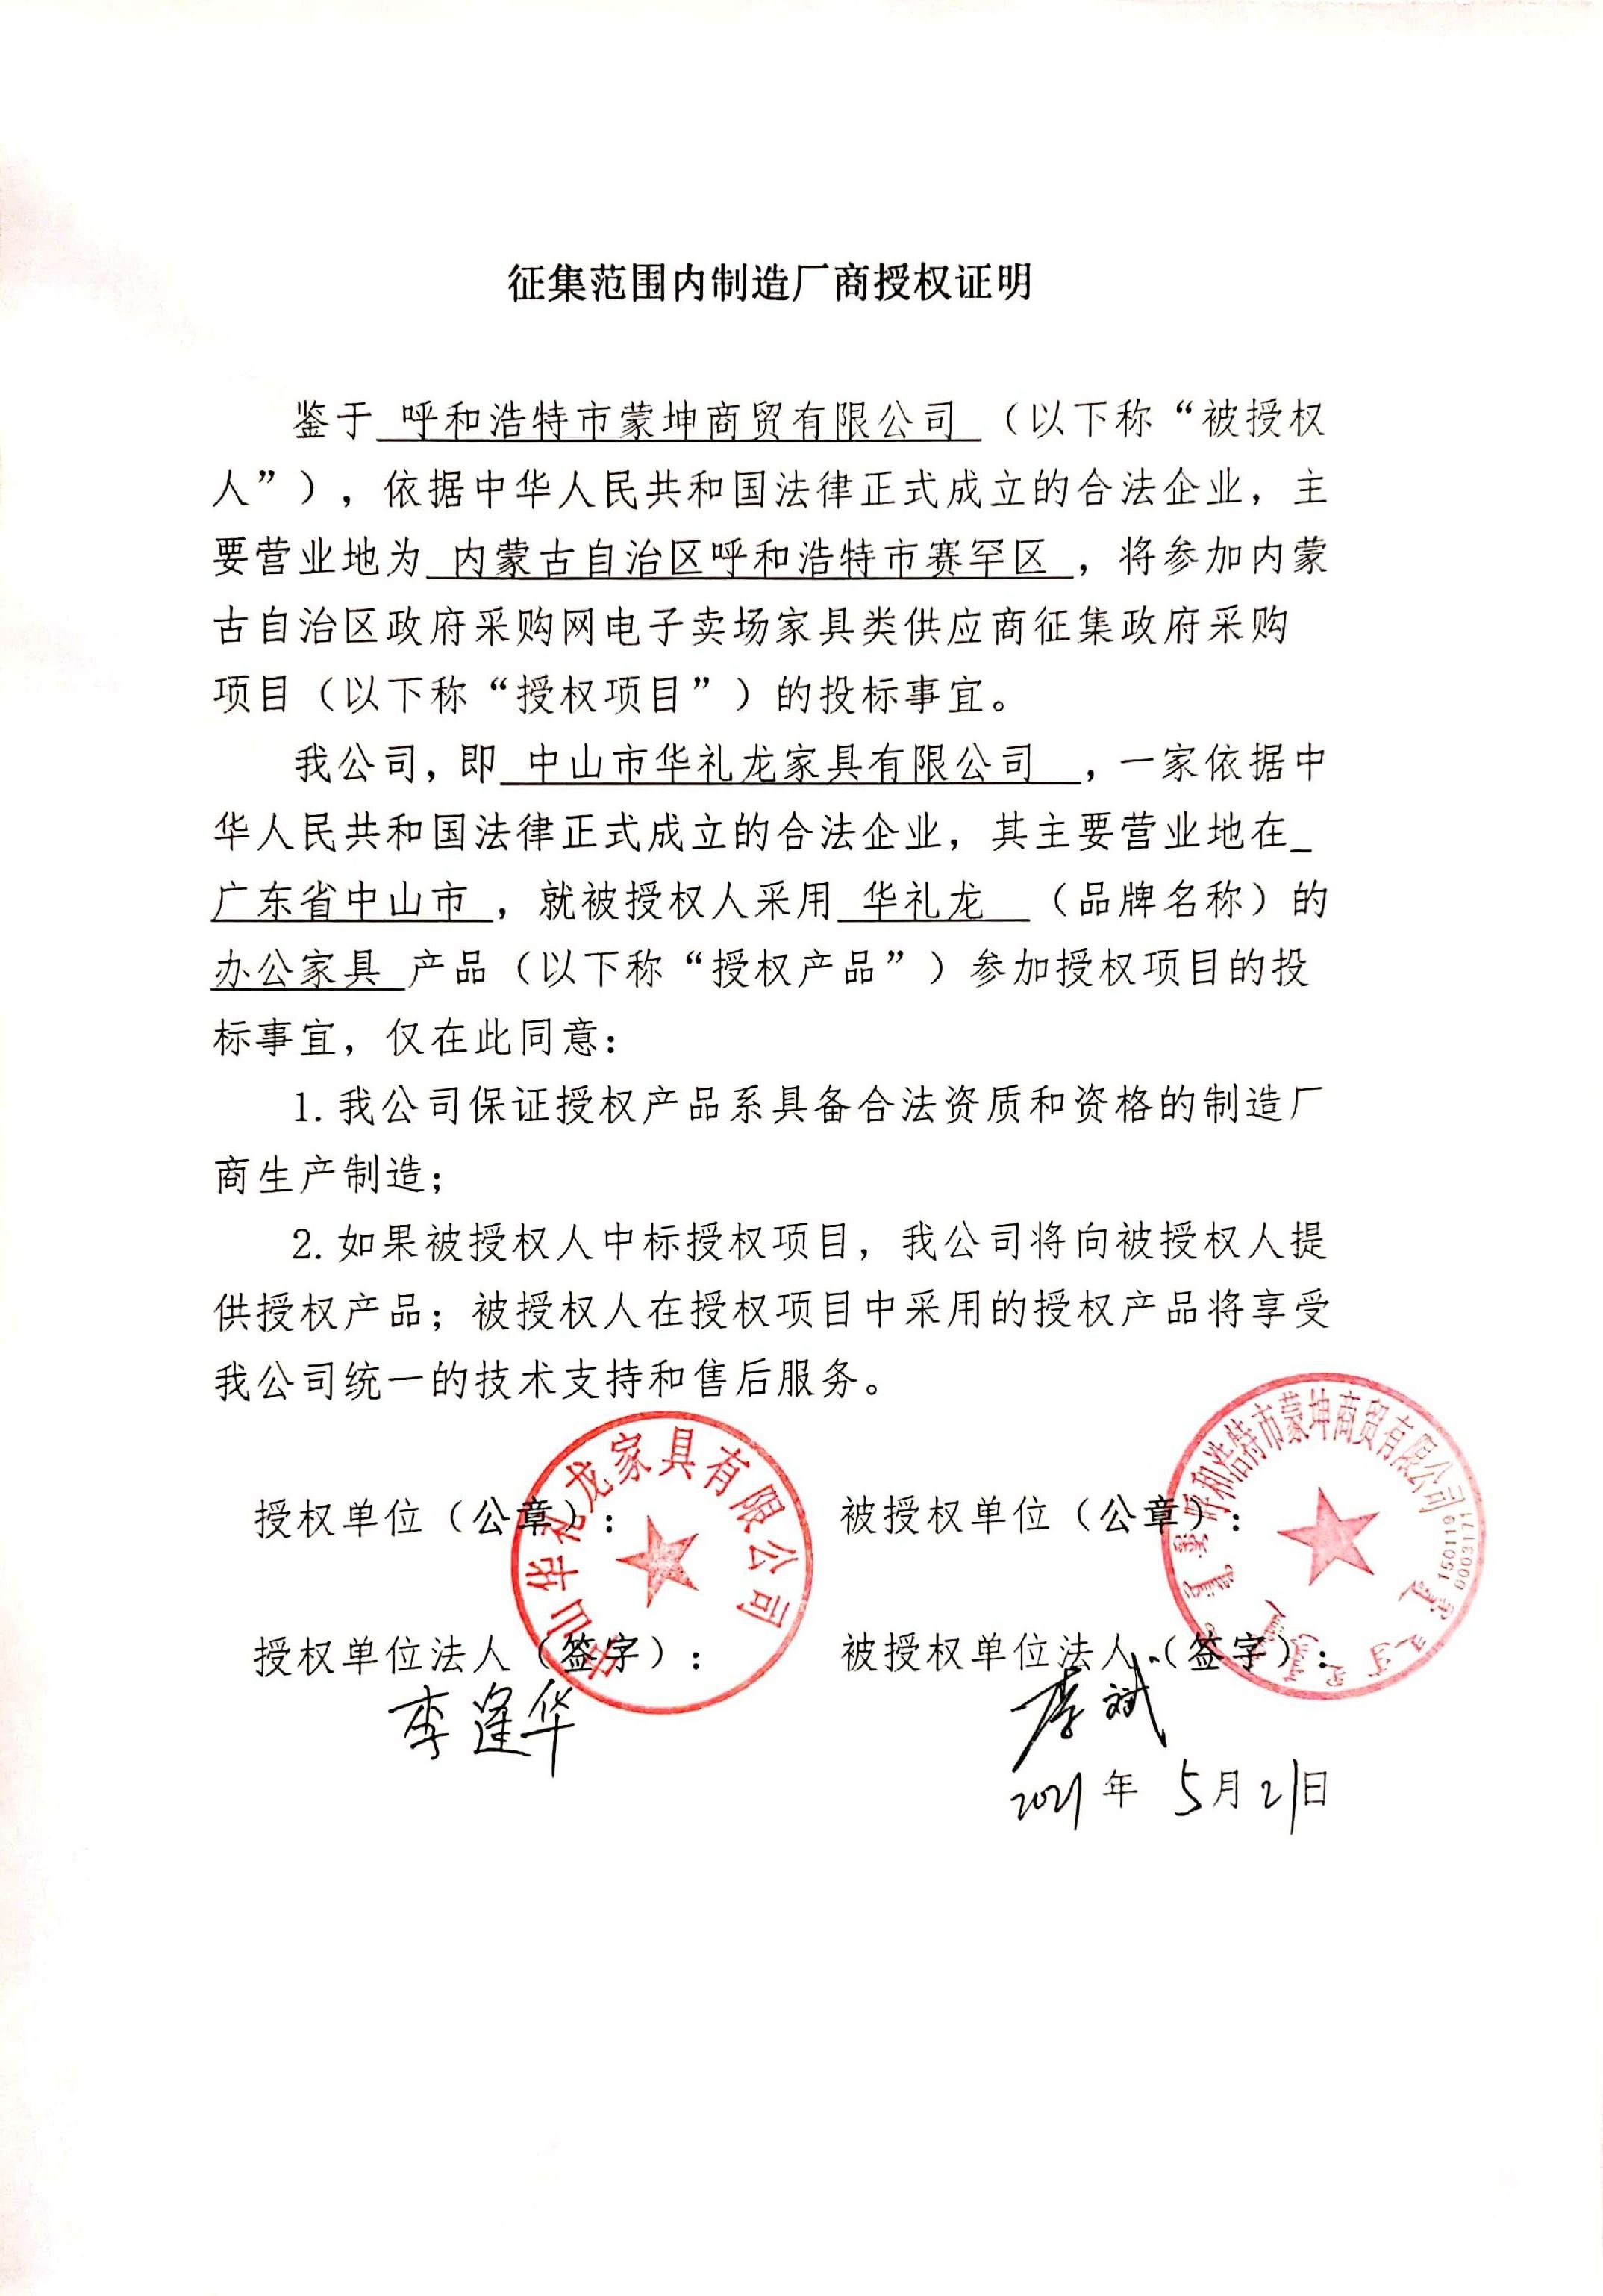 征集范围内制造厂商授权证明
鉴于 呼和浩特市蒙坤商贸有限公司 （以下称“被授权
人”），依据中华人民共和国法律正式成立的合法企业，主
要营业地为 内蒙古自治区呼和浩特市赛罕区 ，将参加内蒙
古自治区政府采购网电子卖场家具类供应商征集政府采购
项目（以下称“授权项目”）的投标事宜。
我公司，即 中山市华礼龙家具有限公司 ，一家依据中
华人民共和国法律正式成立的合法企业，其主要营业地在_
广东省中山市 ，就被授权人采用 华礼龙 （品牌名称）的
办公家具 产品（以下称“授权产品”）参加授权项目的投
标事宜，仅在此同意：
1.我公司保证授权产品系具备合法资质和资格的制造厂
商生产制造；
2.如果被授权人中标授权项目，我公司将向被授权人提
供授权产品；被授权人在授权项目中采用的授权产品将享受
我公司统一的技术支持和售后服务。
授权单位（公章）： 被授权单位（公章）：
中山华礼龙家具有限公司
呼和浩特市蒙坤商贸有限公司
授权单位法人（签字）： 被授权单位法人（签字）：
李逢华 李斌
2021年 5月21日